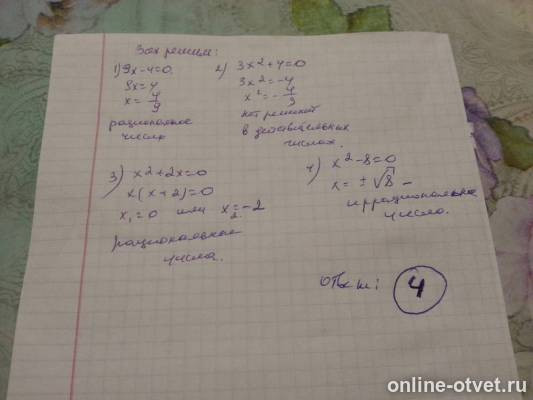 Зах решим:
1) 9x-4=0.
9x=4
x=4/9
рациональное
число
2) 3x²+4=0
3x²=-4
x²=-4/3
нет решений
в действительных
числах.
3) x²+2x=0
x(x+2)=0
x₁=0 или x₂=-2
рациональные
числа.
4) x²-8=0
x=±√8 –
иррациональное
число.
4
online-otvet.ru